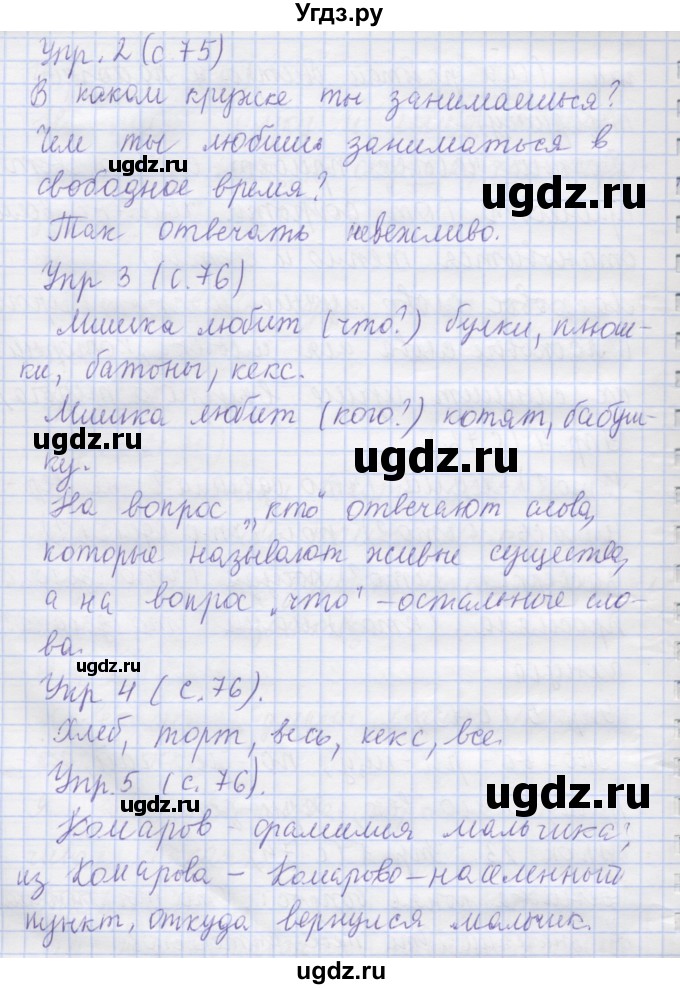 Угдз.ру
Упр. 2 (с 75)
В каком кружке ты занимаешься?
Чем ты любишь заниматься в
ugdz.ru
свободное время?
ugdz.ru
Так отвечать невежливо.
ugdz.ru
Упр 3 (с. 76)
Мишка любит (что?) булки, плюш-
ки, батоны, кекс.
Мишка любит (кого?) котят, бабуш-
ugdz.ru
ugdz.ru
ку.
На вопрос „кто“ отвечают слова,
которые называют живые существа,
а на вопрос „что“ - остальные сло-
ва.
ugdz.ru
Упр 4 (с. 76).
Хлеб, торт, весь, кекс, все.
Упр. 5 (с. 76).
ugdz.ru
Комаров - фамилия мальчика;
из Комарова - Комарово - населенный
пункт, откуда вернулся мальчик.
ugdz.ru
ugdz.ru